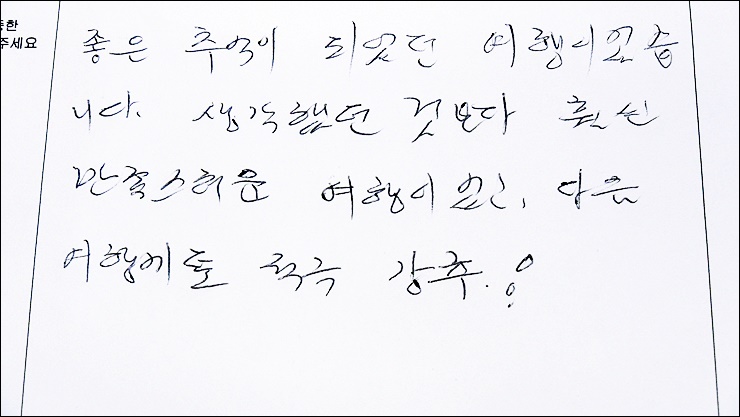 한
주세요
좋은 추억이 되었던 여행이었습
니다. 생각했던 것보다 훨씬
만족스러운 여행이었고, 다음
여행에도 적극 강추.!